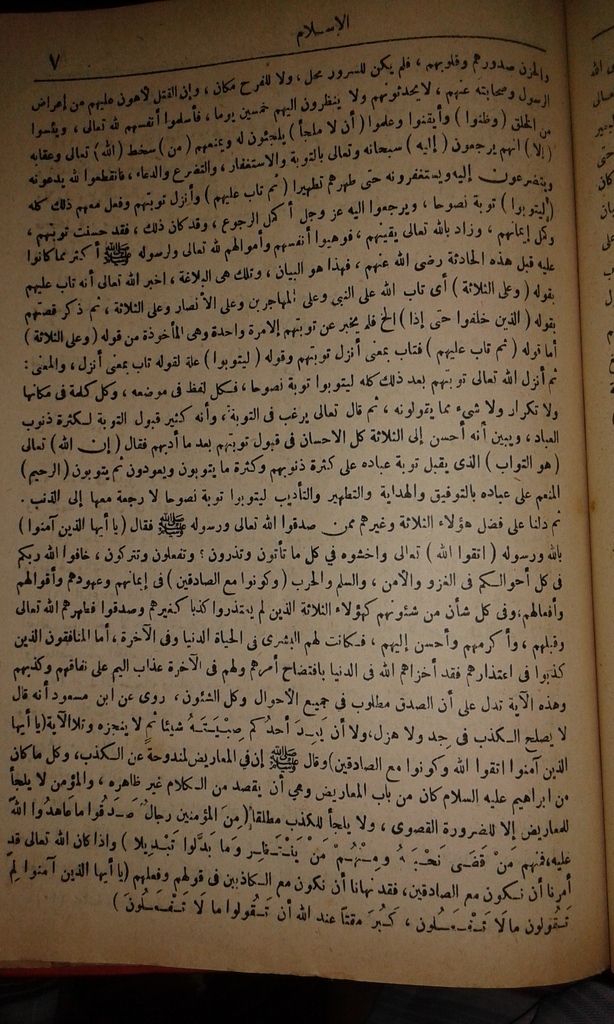 الإسلام
٧
والحزن صدورهم وقلوبهم ، فلم يكن للسرور محل ، ولا للفرح مكان ، وإن القتل لأهون عليهم من إعراض
الرسول وصحابته عنهم ، لا يحدثونهم ولا ينظرون اليهم خمسين يوما ، فأسلموا أنفسهم لله تعالى ، ويئسوا
من الخلق ( وظنوا ) وأيقنوا وعلموا ( أن لا ملجأ ) يلجئون له ويمنعهم ( من ) سخط ( الله ) تعالى وعقابه
( إلا ) انهم يرجعون ( إليه ) سبحانه وتعالى بالتوبة والاستغفار ، والتضرع والدعاء ، فانقطعوا لله يدعونه
ويتضرعون إليه ويستغفرونه حتى طهرهم تطهيرا ( ثم تاب عليهم ) وأنزل توبتهم وفعل معهم ذلك كله
( ليتوبوا ) توبة نصوحا ، ويرجعوا اليه عز وجل أكمل الرجوع ، وقد كان ذلك ، فقد حسنت توبتهم ،
وكمل إيمانهم ، وزاد بالله تعالى يقينهم ، فوهبوا أنفسهم وأموالهم لله تعالى ولرسوله ﷺ أكثر مما كانوا
عليه قبل هذه الحادثة رضى الله عنهم ، فهذا هو البيان ، وتلك هى البلاغة ، اخبر الله تعالى أنه تاب عليهم
بقوله ( وعلى الثلاثة ) أى تاب الله على النبي وعلى المهاجرين وعلى الأنصار وعلى الثلاثة ، ثم ذكر قصتهم
بقوله ( الذين خلفوا حتى إذا ) الخ فلم يخبر عن توبتهم إلا مرة واحدة وهى المأخوذة من قوله ( وعلى الثلاثة )
أما قوله ( ثم تاب عليهم ) فتاب بمعنى أنزل توبتهم وقوله ( ليتوبوا ) علة لقوله تاب بمعنى أنزل ، والمعنى :
ثم أنزل الله تعالى توبتهم بعد ذلك كله ليتوبوا توبة نصوحا ، فكل لفظ فى موضعه ، وكل كلمة فى مكانها
ولا تكرار ولا شىء مما يقولونه ، ثم قال تعالى يرغب فى التوبة ، وأنه كثير قبول التوبة لكثرة ذنوب
العباد ، ويبين أنه أحسن إلى الثلاثة كل الاحسان فى قبول توبتهم بعد ما أدبهم فقال ( إن الله ) تعالى
( هو التواب ) الذى يقبل توبة عباده على كثرة ذنوبهم وكثرة ما يتوبون ويعودون ثم يتوبون ( الرحيم )
المنعم على عباده بالتوفيق والهداية والتطهير والتأديب ليتوبوا توبة نصوحا لا رجعة معها إلى الذنب .
ثم دلنا على فضل هؤلاء الثلاثة وغيرهم ممن صدقوا الله تعالى ورسوله ﷺ فقال ( يا أيها الذين آمنوا )
بالله ورسوله ( اتقوا الله ) تعالى واخشوه في كل ما تأتون وتذرون ؟ وتفعلون وتتركون ، خافوا الله ربكم
فى كل أحوالكم فى الغزو والأمن ، والسلم والحرب ( وكونوا مع الصادقين ) فى إيمانهم وعهودهم وأقوالهم
وأفعالهم ، وفى كل شأن من شئونهم كهؤلاء الثلاثة الذين لم يعتذروا كذبا كغيرهم وصدقوا فطهرهم الله تعالى
وقبلهم ، وأكرمهم وأحسن إليهم ، فكانت لهم البشرى فى الحياة الدنيا وفى الآخرة ، أما المنافقون الذين
كذبوا فى اعتذارهم فقد أخزاهم الله فى الدنيا بافتضاح أمرهم ولهم فى الآخرة عذاب اليم على نفاقهم وكذبهم
وهذه الآية تدل على أن الصدق مطلوب فى جميع الأحوال وكل الشئون ، روى عن ابن مسعود أنه قال
لا يصلح الكذب فى جد ولا هزل ، ولا أن يَعِدَ أحدُكم صِبْيَتَهُ شيئا ثم لا ينجزه وتلا الآية ( يا أيها
الذين آمنوا اتقوا الله وكونوا مع الصادقين ) وقال ﷺ إن في المعاريض لمندوحةً عن الكذب ، وكل ما كان
من ابراهيم عليه السلام كان من باب المعاريض وهى أن يقصد من الكلام غير ظاهره ، والمؤمن لا يلجأ
للمعاريض إلا للضرورة القصوى ، ولا يلجأ للكذب مطلقا ( من المؤمنين رجالٌ صَدَقُوا ما عاهدُوا اللهَ
عليه ، فمنهم مَنْ قَضَى نَحْبَهُ وَمِنْهُمْ مَنْ يَنْتَظِرُ وَمَا بَدَّلُوا تَبْدِيلا ) واذا كان الله تعالى قد
أمرنا أن نكون مع الصادقين ، فقد نهانا أن نكون مع الكاذبين فى قولهم وفعلهم ( يا أيها الذين آمنوا لِمَ
تَقُولون مالاَ تَفْعَلُون ، كَبُرَ مقتًا عند الله أن تَقُولوا ما لاَ تَفْعَلُونَ )